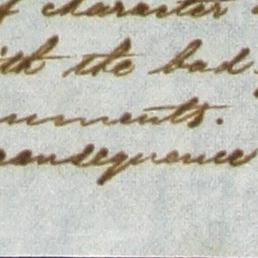 of character
with the bad
uments.
consequence